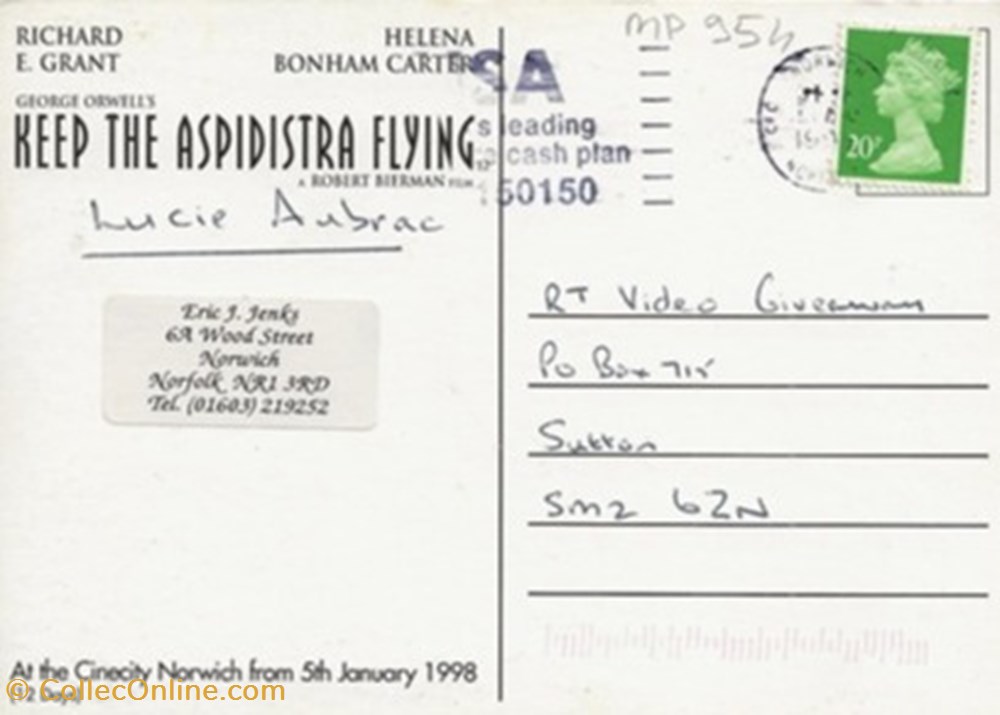 RICHARD E. GRANT
HELENA BONHAM CARTER
GEORGE ORWELL'S
KEEP THE ASPIDISTRA FLYING
A ROBERT BIERMAN FILM
Lucie Aubrac
Eric J. Jenks
6A Wood Street
Norwich
Norfolk NR1 3RD
Tel. (01603) 219252
At the Cinecity Norwich from 5th January 1998
© CollecOnline.com
MP 954
SA
s leading
cash plan
50150
20P
RT Video Giveaway
PO Box 715
Sutton
SM2 6ZN